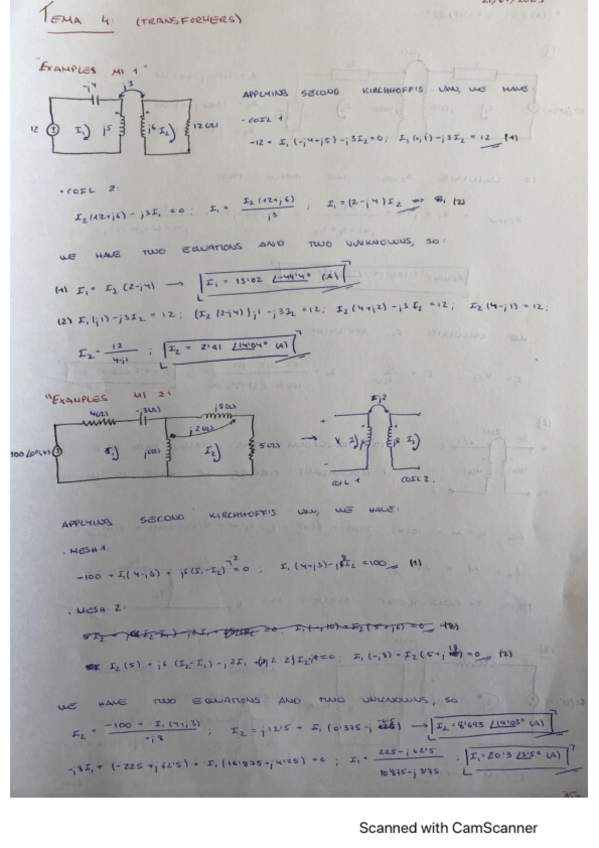 TEMA 4: (TRANSFORMERS)
"EXAMPLES MI 1"
-j4 j3
12 I₁ j5 j6 I₂ 12(Ω)
APPLYING SECOND KIRCHHOFF'S LAW, WE HAVE:
· COIL 1:
-12 + I₁(-j4+j5) - j3I₂ = 0; I₁(j1) - j3I₂ = 12 (1)
· COIL 2:
I₂(12+j6) - j3I₁ = 0; I₁ = I₂(12+j6) / j3; I₁ = (2-j4)I₂ (2)
WE HAVE TWO EQUATIONS AND TWO UNKNOWNS, SO:
(1) I₁ = I₂(2-j4) → I₁ = 13'02 ∠-49'4° (A)
(2) I₁(j1) - j3I₂ = 12; (I₂(2-j4))j1 - j3I₂ = 12; I₂(4+j2) - j3I₂ = 12; I₂(4-j1) = 12;
I₂ = 12 / 4-j1; I₂ = 2'91 ∠14'04° (A)
"EXAMPLES MI 2"
4(Ω) -j3(Ω) j8(Ω) j2
j2(Ω)
100∠0°(V) I₁ j6(Ω) I₂ 5(Ω) → I₁ j6 j8 I₂
COIL 1 COIL 2.
APPLYING SECOND KIRCHHOFF'S LAW, WE HAVE:
· MESH 1:
-100 + I₁(4-j3) + j6(I₁-I₂) = 0; I₁(4+j3) - j8I₂ = 100 (1)
· MESH 2:
I₂(5) + j6(I₂-I₁) - j2I₁ = 0; I₁(-j8) + I₂(5+j18) = 0 (2)
WE HAVE TWO EQUATIONS AND TWO UNKNOWNS, SO
I₂ = -100 + I₁(4+j3) / j8; I₂ = j12'5 + I₁(0'375-j → I₂ = 8'693 ∠19'03° (A)
-j8I₁ + (-225+j62'5) + I₁(10'875+j4'25) = 0; I₁ = 225-j62'5 / 10'875-j3'75; I₁ = 20'3 ∠3'5° (A)
Scanned with CamScanner